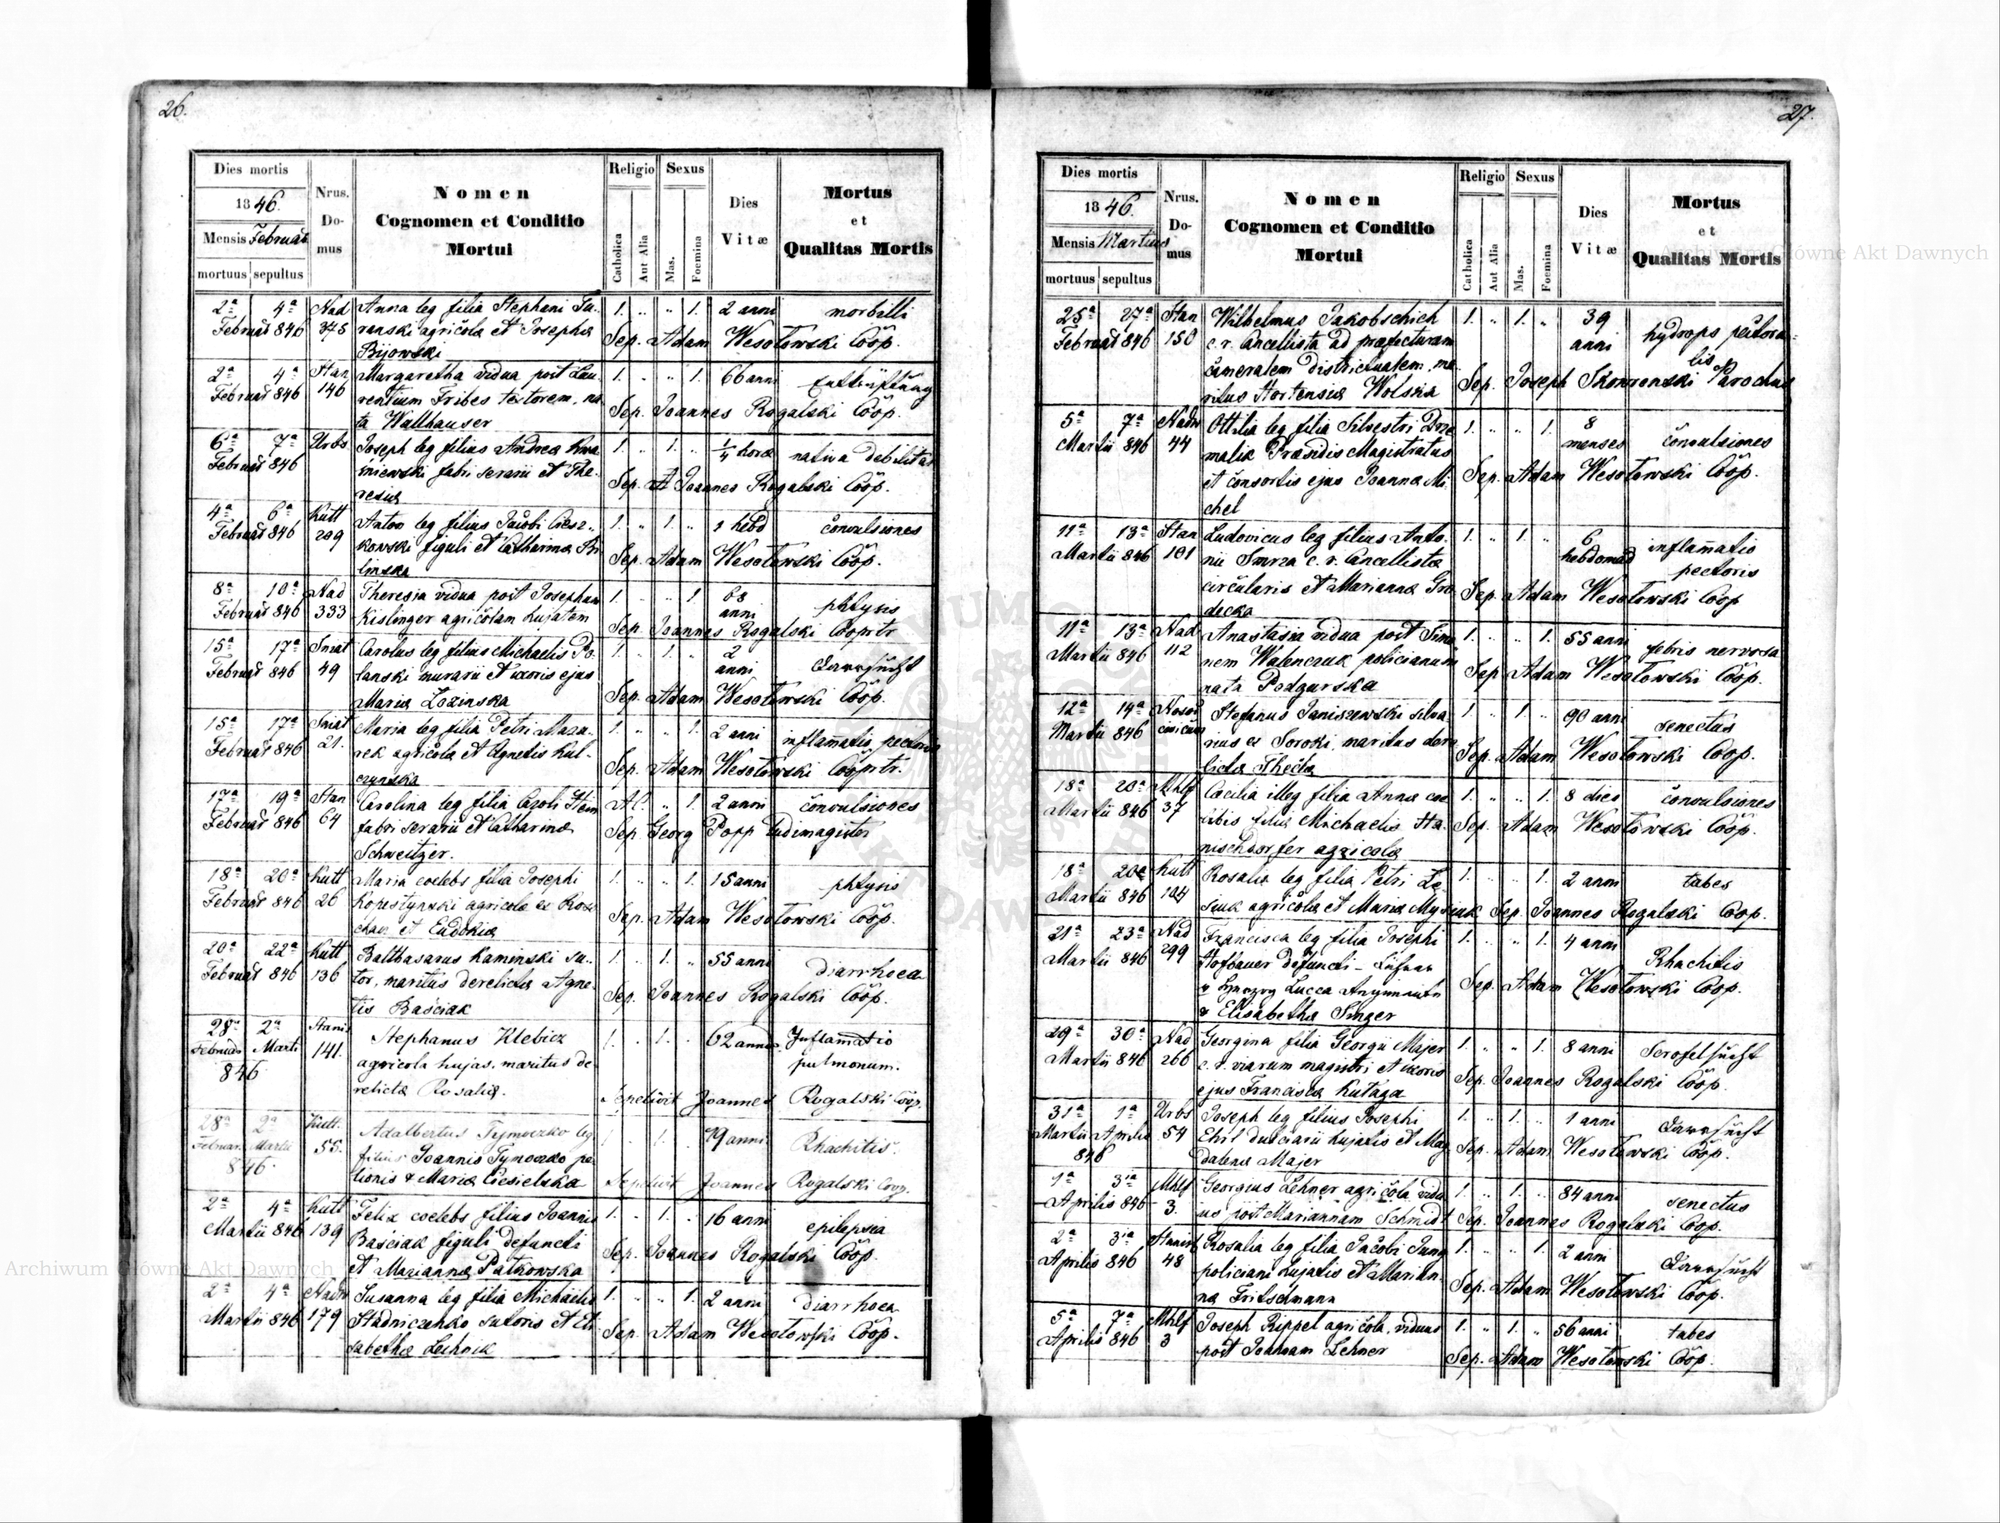 26.
Dies mortis
1846.
Mensis Februar
mortuus sepultus
Nrus. Do- mus
Nomen
Cognomen et Conditio
Mortui
Religio
Catholica
Aut Alia
Sexus
Mas.
Foemina
Dies
Vitæ
Mortus
et
Qualitas Mortis
2a 4a Nad Anna leg filia Stephani
Februar 846 345 ranski agricola et Josepha
Bijowski
1. " " 1. 2 anni morbilli
Sep. Adam Wesolowski Coop.
2a 4a Stan Margaretha vidua post Lau-
Februar 846 146 rentium Fribes textorem, na-
ta Wallhauser
1. " " 1. 66 anni Entkräftung
Sep. Joannes Rogalski Coop.
6a 7a Urbs Joseph leg filius Andrea
Februar 846 niewski fabri serarii et The-
resia
1. " 1. " 1/4 hora nativa debilitas
Sep. Joannes Rogalski Coop.
4a 6a Kutt Anton leg filius Jacobi Ciesz-
Februar 846 209 kowski figuli et Catharina Bi-
linska
1. " 1. " 1 hebd convulsiones
Sep. Adam Wesolowski Coop.
8a 10a Nad Theresia vidua post Josephum
Februar 846 333 Kislinger agricolam hujatem
1. 1. 68 anni phtysis
Sep. Joannes Rogalski Cooprtr
15a 17a Sniat Carolus leg filius Michaelis Po-
Februar 846 49 lanski murarii et uxoris ejus
Maria Lozinska
1. 1. 2 anni Darrsucht
Sep. Adam Wesolowski Coop.
15a 17a Sniat Maria leg filia Petri Mazu-
Februar 846 21. rek agricola et Agnetis Kul-
czynska
1. " " 1. 2 anni inflamatio pectoris
Sep. Adam Wesolowski Cooprtr.
17a 19a Stan Carolina leg filia Caroli Stein
Februar 846 64 fabri serarii et Catharina
Schweitzer.
" 1. 2 anni convulsiones
Sep. Georg Popp ludimagister
18a 20a Kutt Maria coelebs filia Josephi
Februar 846 26 Kopestynski agricola ex
et Eudokia
1. " " 1. 15 anni phtysis
Sep. Adam Wesolowski Coop.
20a 22a Kutt Balthasarus Kaminski su-
Februar 846 136 tor, maritus derelicta Agne-
tis Baściak
1. " 1. " 55 anni diarrhoea
Sep. Joannes Rogalski Coop.
28a 2a Stanis Stephanus Klebicz
Februar Marti 141. agricola hujas, maritus de-
846 relicta Rosalia.
1. 1. 62 annos Inflamatio
pulmonum.
Sepelivit Joannes Rogalski Coop.
28a 2a Kutt. Adalbertus Tymoczko leg.
Februar. Martii 55. filius Joannis Tymoczko
846. & Maria Ciesielska
1. 1. 19 anni Rhachitis.
Sepelivit Joannes Rogalski Coop.
2a 4a Kutt Felix coelebs filius Joannis
Martii 846 139 Baściak figuli defuncti
et Marianna Patkowska
1. " 1. " 16 anni epilepsia
Sep. Joannes Rogalski Coop.
2a 4a Nadw Susanna leg filia Michaelis
Martii 846 179 Stadniczenko sutoris et Eli-
sabetha Lechnik
1. " " 1. 2 anni diarrhoea
Sep. Adam Wesolowski Coop.
27.
Dies mortis
1846.
Mensis Martius
mortuus sepultus
Nrus. Do- mus
Nomen
Cognomen et Conditio
Mortui
Religio
Catholica
Aut Alia
Sexus
Mas.
Foemina
Dies
Vitæ
Mortus
et
Qualitas Mortis
25a 27a Stan Wilhelmus Jakobschich
Februar 846 150 c. r. Cancellista ad præfecturam
cameralem districtualem, ma-
ritus Hortensia Wolska
1. " 1. " 39 anni hydrops pectora-
lis
Sep. Joseph Skowronski Parochus
5a 7a Nadw Ottilia leg filia Silvestri Drze-
Martii 846 44 malik Præsidis Magistratus
et consortis ejus Joanna Mi-
chel
1. " " 1. 8 menses convulsiones
Sep. Adam Wesolowski Coop.
11a 13a Stan Ludovicus leg filius Anto-
Martii 846 101 nii Smrza c. r. Cancellista
circularis et Marianna Gro-
decka
1. " 1. " 6 hebdomad inflamatio
pectoris
Sep. Adam Wesolowski Coop
11a 13a Nad Anastasia vidua post Simo-
Martii 846 112 nem Walenczuk policianum
nata Podgurska
1. " " 1. 55 anni febris nervosa
Sep. Adam Wesolowski Coop.
12a 14a Stefanus Janiszewski silva-
Martii 846 rius ex Soroki, maritus dere-
licta Thecla
1. " 1. " 90 anni senectus
Sep. Adam Wesolowski Coop.
18a 20a Mhlf Cæcilia illeg filia Anna coe-
Martii 846 37 libis filia Michaelis Ha-
nischdorfer agricola
1. " " 1. 8 dies convulsiones
Sep. Adam Wesolowski Coop.
18a 20a Kutt Rosalia leg filia Petri
Martii 846 104 agricola et Maria
1. " " 1. 2 anni tabes
Sep. Joannes Rogalski Coop.
21a 23a Nad Francisca leg filia Josephi
Martii 846 299 Hofbauer defuncti
Lucca
& Elisabetha Singer
1. " " 1. 4 anni Rhachitis
Sep. Adam Wesolowski Coop.
29 30a Nad Georgina filia Georgii Majer
Martii 846 266 c. r. viarum magistri et uxoris
ejus Francisca Kutaga
1. " " 1. 8 anni Scrofelsucht
Sep. Joannes Rogalski Coop.
31a 1a Urbs Joseph leg filius Josephi
Martii Aprilis 54 Ehrl dulciarii hujatis et Mag-
846 dalena Majer
1. " 1. " 1 anni Darrsucht
Sep. Adam Wesolowski Coop.
1a 3a Mhlf Georgius Lehner agricola, vidu-
Aprilis 846 3. us post Mariannam Schmidt
1. " 1. " 84 anni senectus
Sep. Joannes Rogalski Coop.
2a 3a Stanisl Rosalia leg filia Jacobi Jung
Aprilis 846 48 policiani hujatis et Marian-
na Fritschmann
1. " " 1. 2 anni Darrsucht
Sep. Adam Wesolowski Coop.
5a 7a Mhlf Joseph Rippel agricola, viduus
Aprilis 846 3 post Joannam Lehner
1. " 1. " 56 anni tabes
Sep. Adam Wesolowski Coop.
Archiwum Główne Akt Dawnych
Archiwum Główne Akt Dawnych